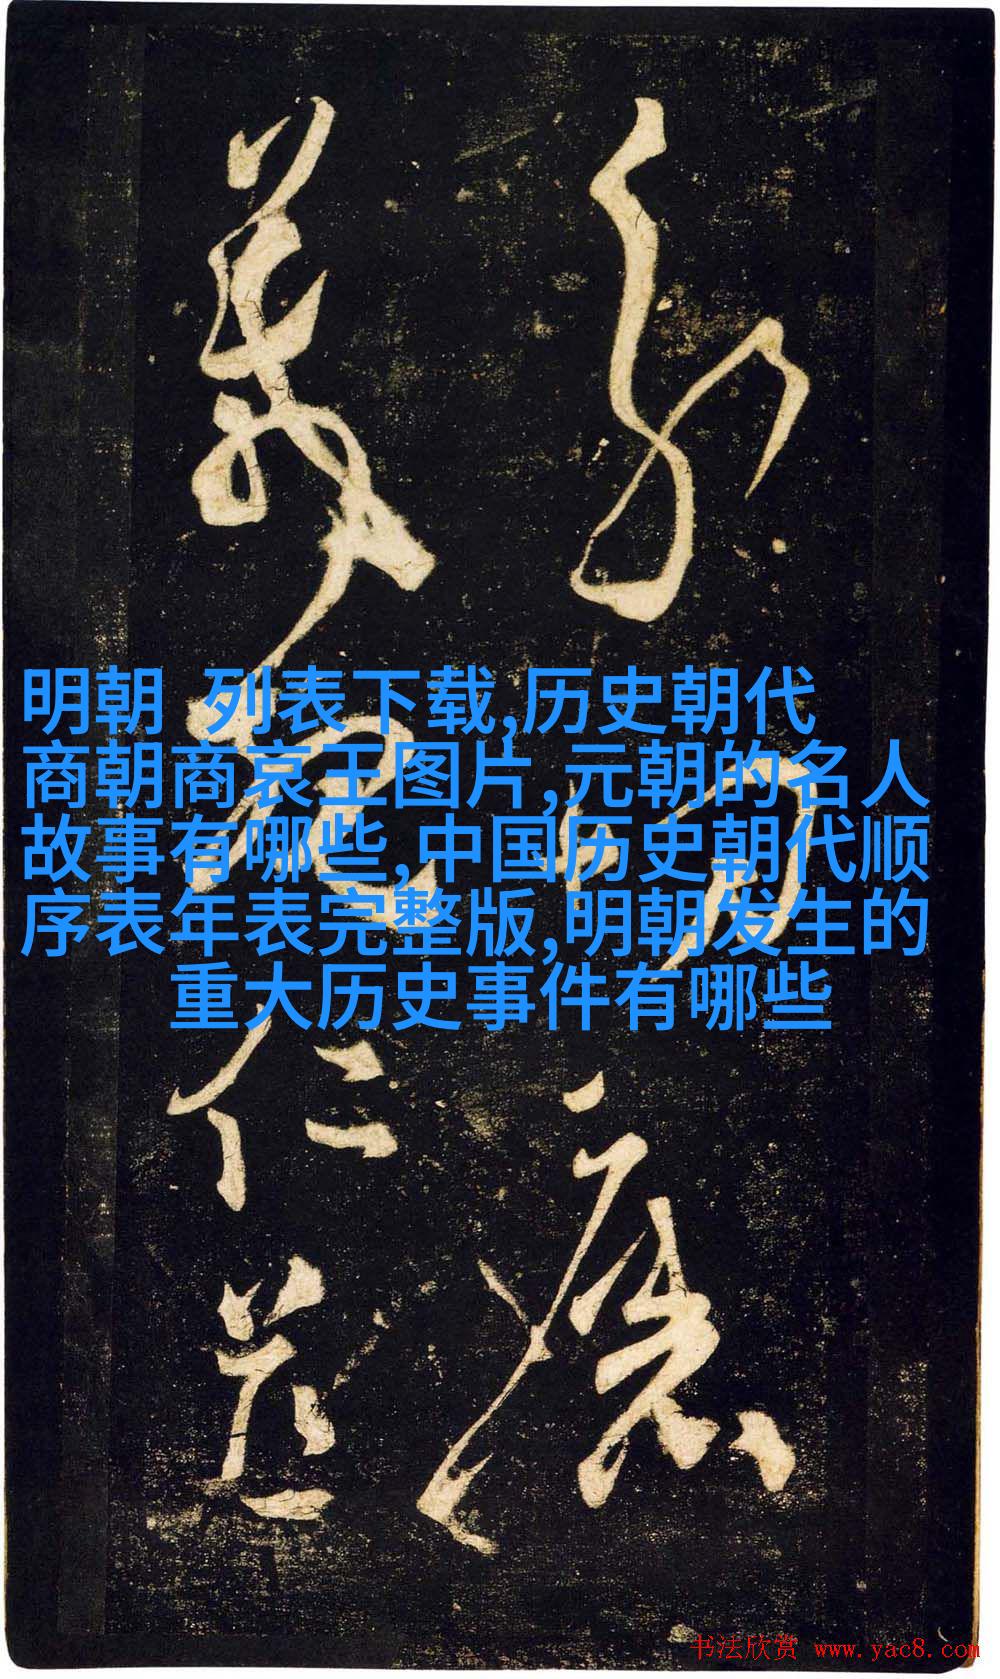 分切磨
箴規仁慈
明朝 列表下载,历史朝代
商朝商哀王图片,元朝的名人
故事有哪些,中国历史朝代顺
序表年表完整版,明朝发生的
重大历史事件有哪些
书法欣赏 www.yac8.com